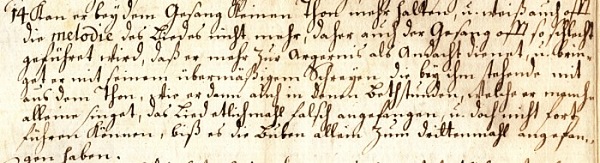 14 Kan er bey dem Gesang keinen Thon mehr halten, u. weiß auch offt
die melodie des Liedes nicht mehr, daher auch der Gesang offt so schlecht
geführet wird, daß er mehr zur Argernis als Andacht dienet, u. brin-
get er mit seinem übermäßigen Schreyen die bey ihm stehende mit
aus dem Thon, wie er dann auch in denen Bethstunden, welche er manche
alleine singet, das Lied etlichmahl falsch angefangen, u. doch nicht fort
führen können, biß es die Buben allein zum drittenmahl angefan-
gen haben.